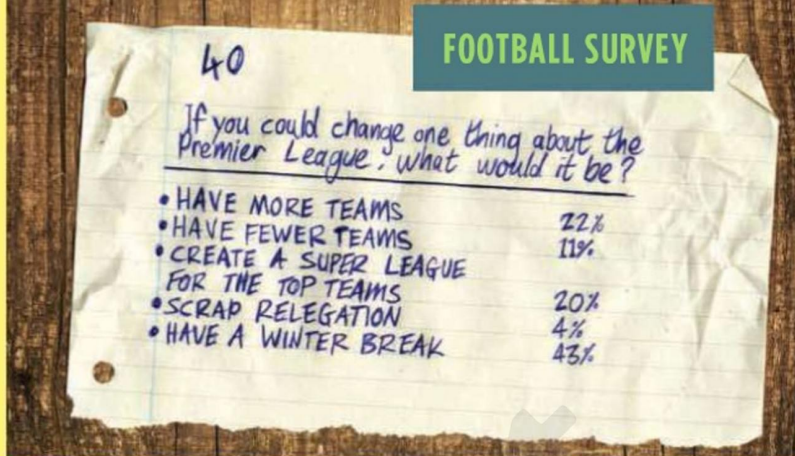 FOOTBALL SURVEY
40
If you could change one thing about the
Premier League, what would it be?
• HAVE MORE TEAMS 22%
• HAVE FEWER TEAMS 11%
• CREATE A SUPER LEAGUE
FOR THE TOP TEAMS 20%
• SCRAP RELEGATION 4%
• HAVE A WINTER BREAK 43%